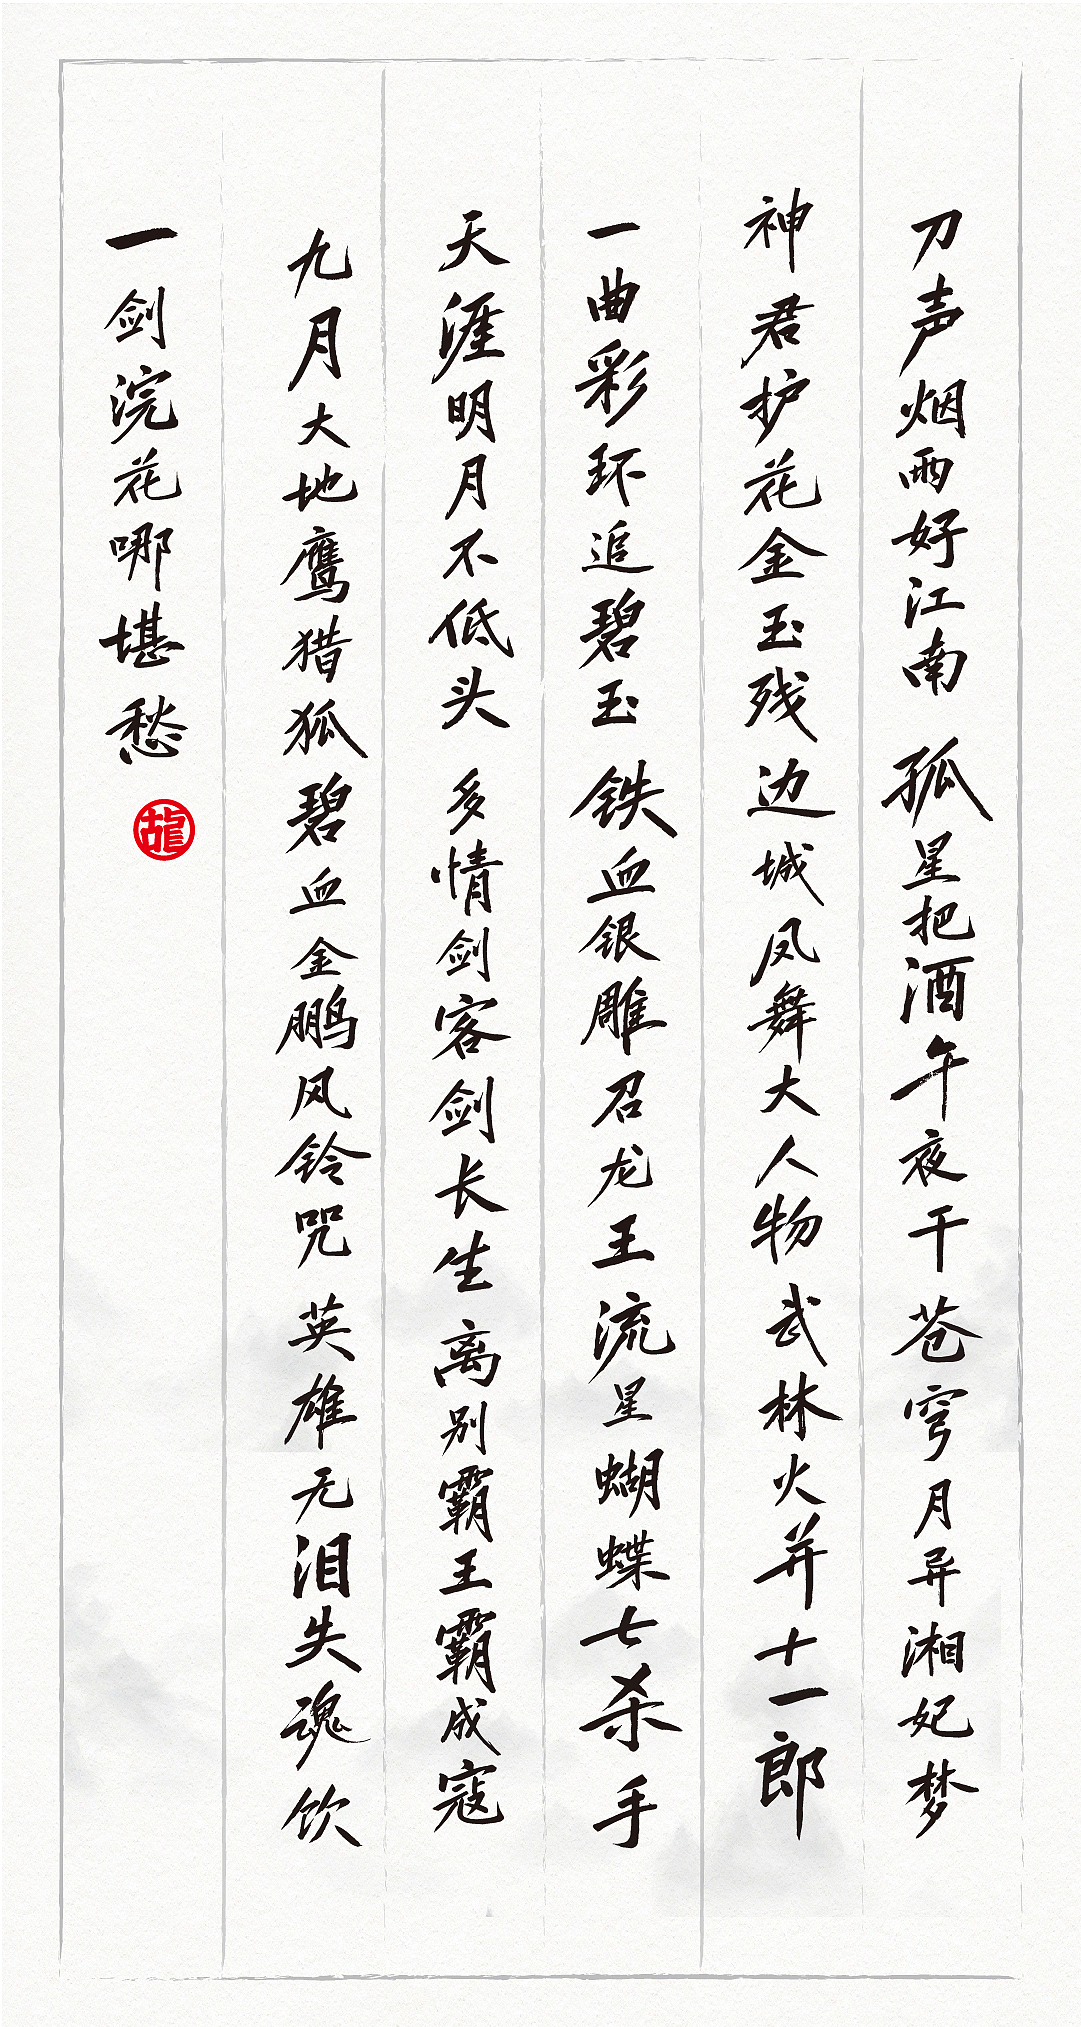 刀声烟雨好江南 孤星把酒午夜干 苍穹月异湘妃梦
神君护花金玉残 边城凤舞大人物 武林火并十一郎
一曲彩环追碧玉 铁血银雕召龙王 流星蝴蝶七杀手
天涯明月不低头 多情剑客剑长生 离别霸王霸成寇
九月大地鹰猎狐 碧血金鹏风铃咒 英雄无泪失魂饮
一剑浣花哪堪愁